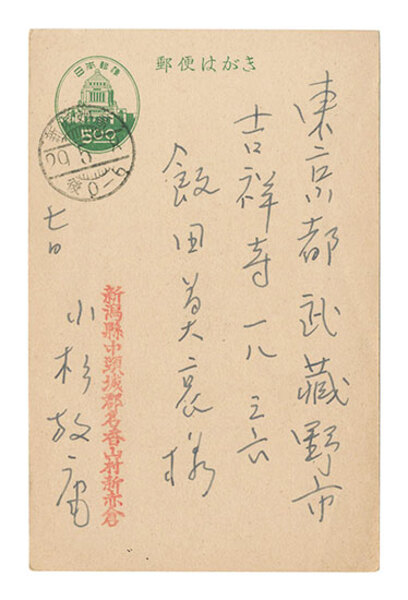 日本郵便
郵便はがき
500
東京都武蔵野市
吉祥寺一八三六
飯田善裒様
新潟縣中頸城郡名香山村新赤倉
小杉放庵
七日
29. 5.
後 0-6